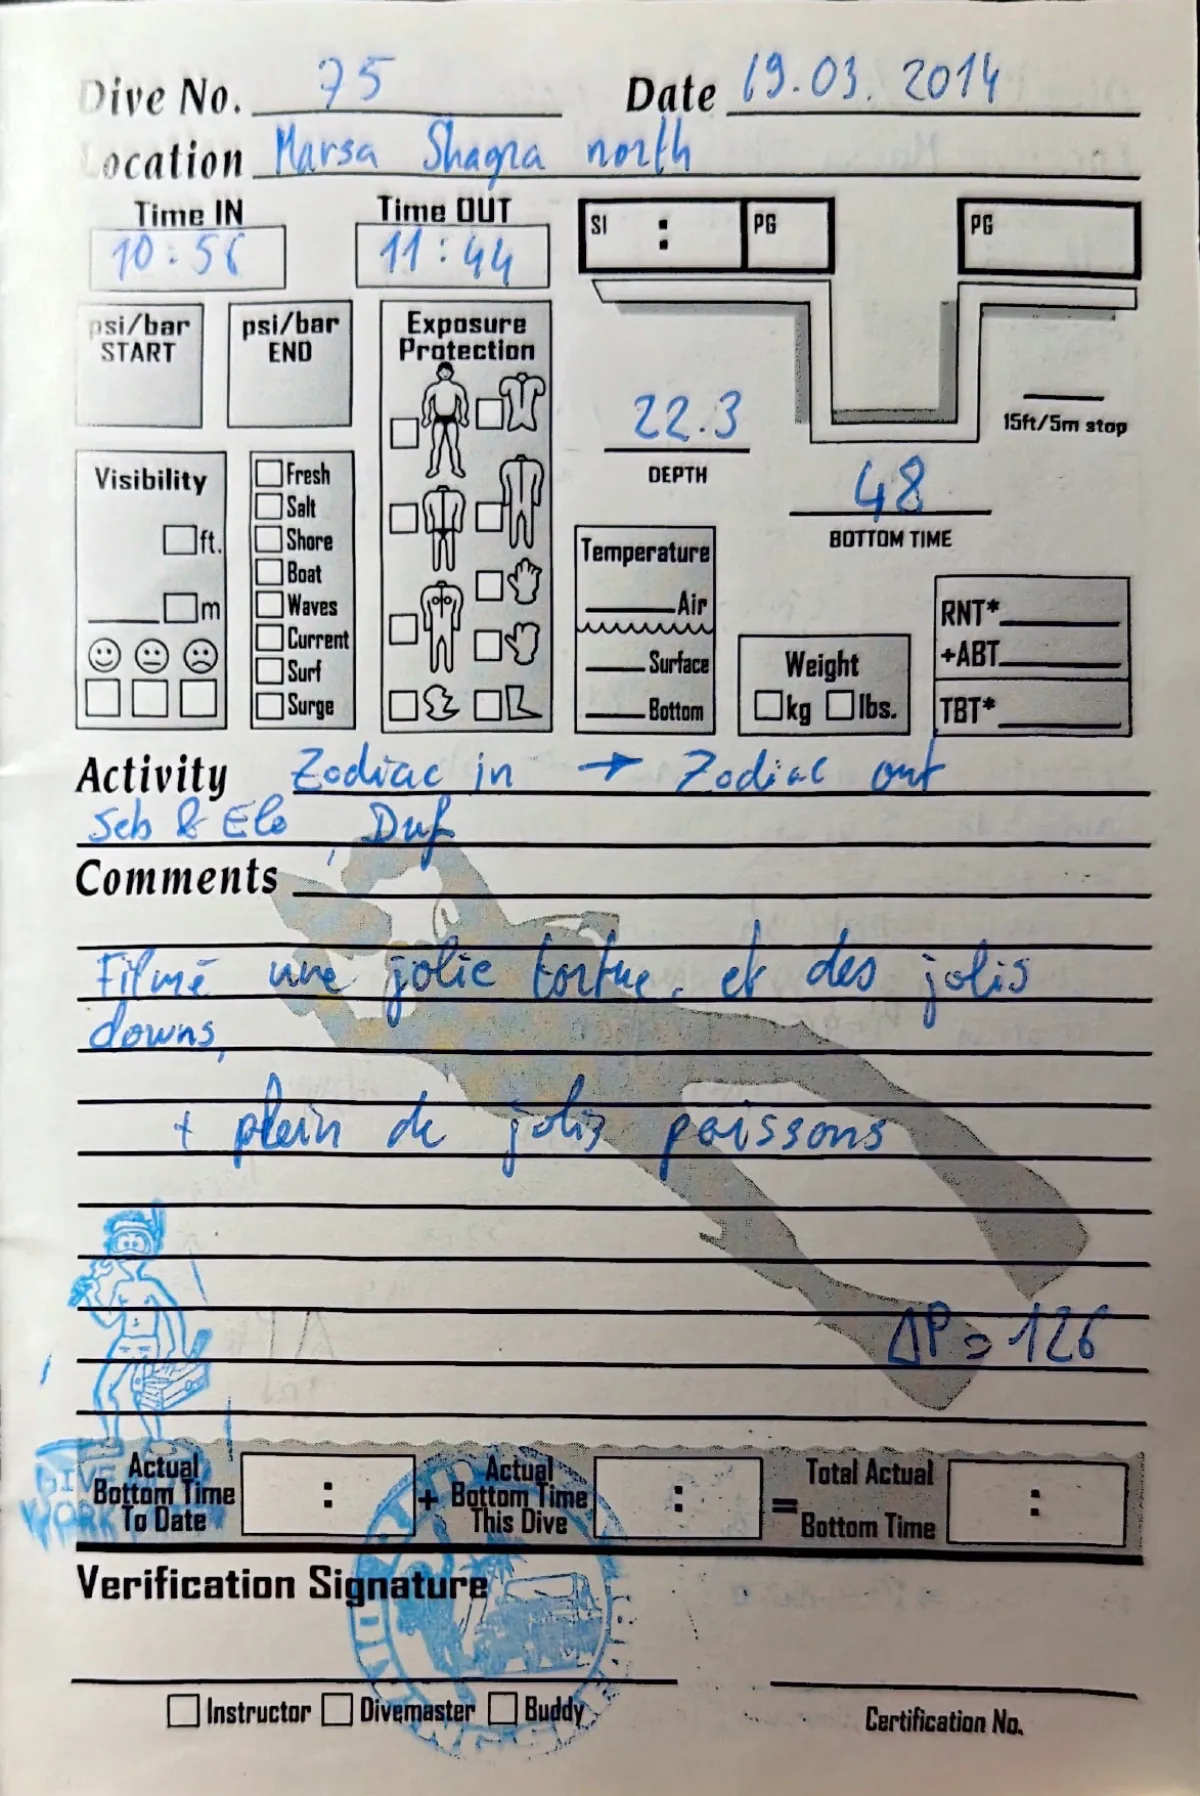 Dive No. 75 Date 19.03.2014
Location Marsa Shagra north
Time IN Time OUT
10:56 11:44
SI : PG PG
psi/bar START psi/bar END
Exposure Protection
22.3
DEPTH
15ft/5m stop
48
BOTTOM TIME
Visibility
ft.
m
Fresh
Salt
Shore
Boat
Waves
Current
Surf
Surge
Temperature
Air
Surface
Bottom
Weight
kg lbs.
RNT*
+ABT
TBT*
Activity Zodiac in → Zodiac out
Seb & Elo, Duf
Comments
Filmé une jolie tortue, et des jolis
clowns,
+ plein de jolis poissons
ΔP = 126
Actual Bottom Time To Date : + Actual Bottom Time This Dive : = Total Actual Bottom Time :
Verification Signature
Instructor Divemaster Buddy
Certification No.